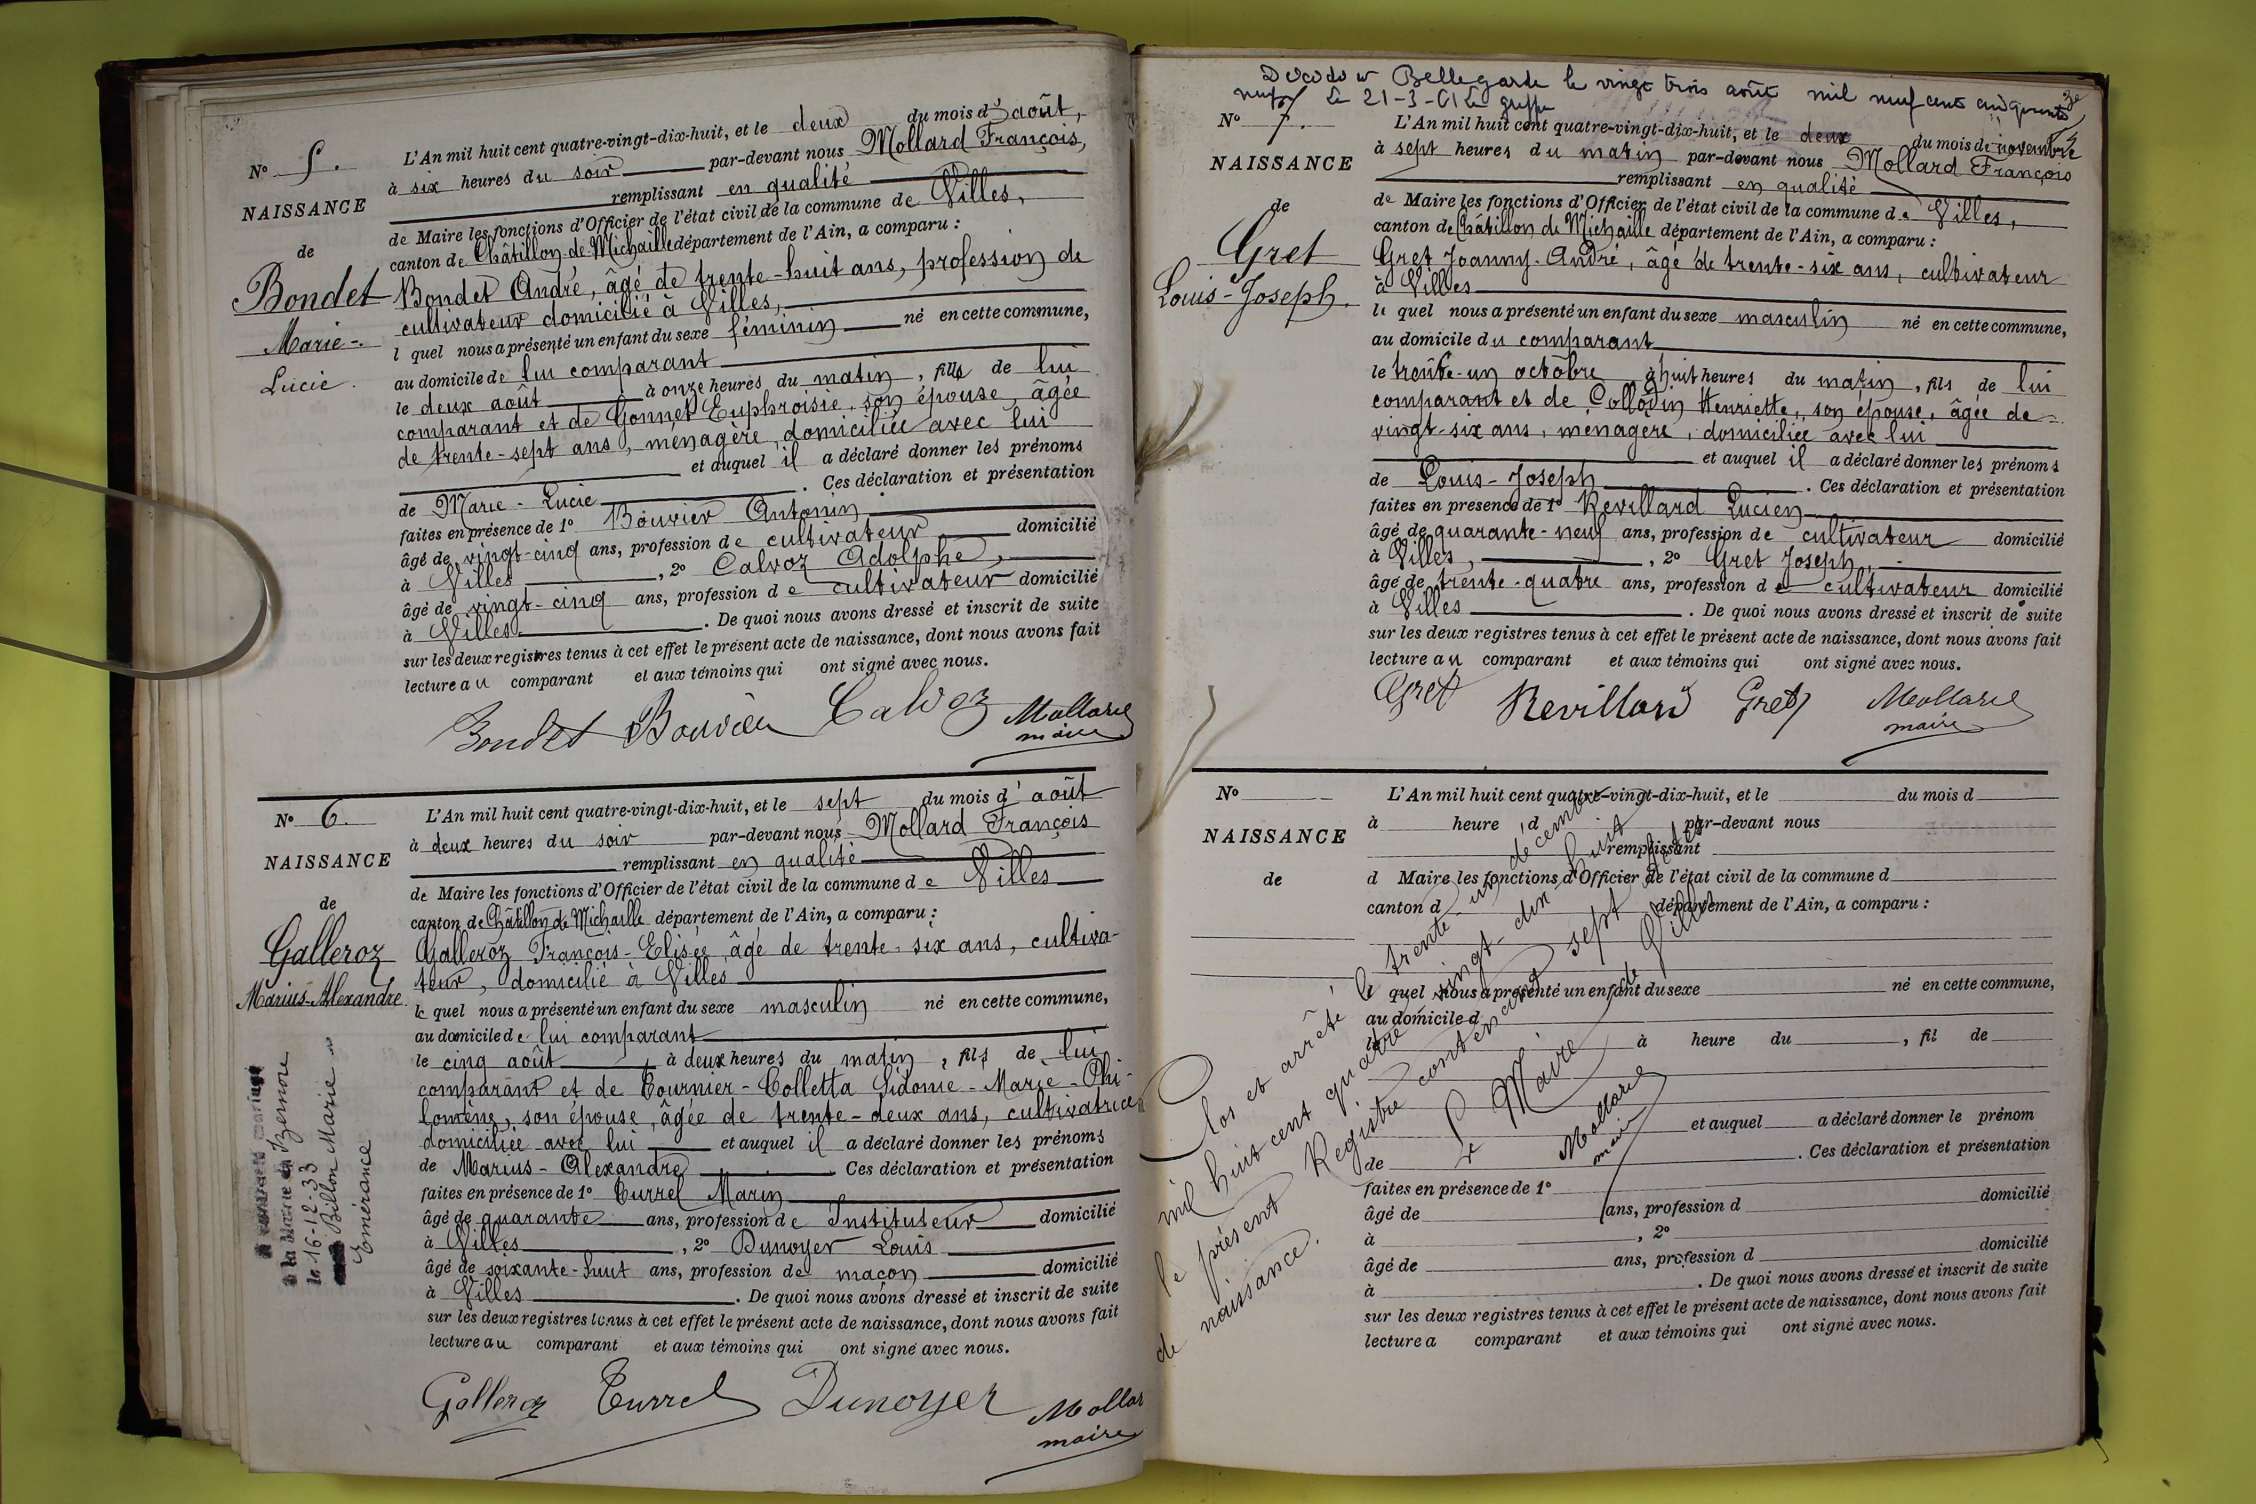 N° 5.
NAISSANCE
de
Bondet
Marie-
Lucie.
L'An mil huit cent quatre-vingt-dix-huit, et le deux du mois d'août,
à six heures du soir par-devant nous Mollard François,
remplissant en qualité
de Maire les fonctions d'Officier de l'état civil de la commune de Villes,
canton de Châtillon-de-Michaille département de l'Ain, a comparu :
Bondet André, âgé de trente-huit ans, profession de
cultivateur domicilié à Villes,
l quel nous a présenté un enfant du sexe féminin né en cette commune,
au domicile de lui comparant
le deux août à onze heures du matin, fille de lui
comparant et de Gonnet Euphroisie, son épouse, âgée
de trente-sept ans, ménagère, domiciliée avec lui
et auquel il a déclaré donner les prénoms
de Marie-Lucie. Ces déclaration et présentation
faites en présence de 1° Bouvier Antonin
âgé de vingt-cinq ans, profession de cultivateur domicilié
à Villes, 2° Calvoz Adolphe,
âgé de vingt-cinq ans, profession de cultivateur domicilié
à Villes. De quoi nous avons dressé et inscrit de suite
sur les deux registres tenus à cet effet le présent acte de naissance, dont nous avons fait
lecture au comparant et aux témoins qui ont signé avec nous.
Bondet Bouvier Calvoz Mollard
maire
N° 6.
NAISSANCE
de
Galleroz
Marius-Alexandre.
mariage
à la Mairie de Izernore
le 16-12-33
Billon Marie
Emérance
L'An mil huit cent quatre-vingt-dix-huit, et le sept du mois d'août
à deux heures du soir par-devant nous Mollard François
remplissant en qualité
de Maire les fonctions d'Officier de l'état civil de la commune de Villes
canton de Châtillon de Michaille département de l'Ain, a comparu :
Galleroz François-Elisée, âgé de trente-six ans, cultiva-
teur, domicilié à Villes
le quel nous a présenté un enfant du sexe masculin né en cette commune,
au domicile de lui comparant
le cinq août, à deux heures du matin, fils de lui
comparant et de Tournier-Colletta Sidonie-Marie-Phi-
lomène, son épouse, âgée de trente-deux ans, cultivatrice
domiciliée avec lui et auquel il a déclaré donner les prénoms
de Marius-Alexandre Ces déclaration et présentation
faites en présence de 1° Turrel Marin
âgé de quarante ans, profession de Instituteur domicilié
à Villes, 2° Dunoyer Louis
âgé de soixante-huit ans, profession de maçon domicilié
à Villes. De quoi nous avons dressé et inscrit de suite
sur les deux registres tenus à cet effet le présent acte de naissance, dont nous avons fait
lecture au comparant et aux témoins qui ont signé avec nous.
Galleroz Turrel Dunoyer Mollar
maire
Décédé à Bellegarde le vingt trois août mil neuf cent cinquante
neuf Le 21-3-61 Le greffe
N° 7.
NAISSANCE
de
Gret
Louis-Joseph.
L'An mil huit cent quatre-vingt-dix-huit, et le deux du mois de novembre
à sept heures du matin par-devant nous Mollard François
remplissant en qualité
de Maire les fonctions d'Officier de l'état civil de la commune de Villes,
canton de Châtillon de Michaille département de l'Ain, a comparu :
Gret Joanny-André, âgé de trente-six ans, cultivateur
à Villes
le quel nous a présenté un enfant du sexe masculin né en cette commune,
au domicile du comparant
le trente-un octobre à huit heures du matin, fils de lui
comparant et de Collovin Henriette, son épouse, âgée de
vingt-six ans, ménagère, domiciliée avec lui
et auquel il a déclaré donner les prénoms
de Louis-Joseph. Ces déclaration et présentation
faites en présence de 1° Revillard Lucien
âgé de quarante-neuf ans, profession de cultivateur domicilié
à Villes, 2° Gret Joseph,
âgé de trente-quatre ans, profession de cultivateur domicilié
à Villes. De quoi nous avons dressé et inscrit de suite
sur les deux registres tenus à cet effet le présent acte de naissance, dont nous avons fait
lecture au comparant et aux témoins qui ont signé avec nous.
Gret Revillard Gret Mollard
maire
N°
NAISSANCE
de
L'An mil huit cent quatre-vingt-dix-huit, et le du mois d
à heure d par-devant nous
remplissant
d Maire les fonctions d'Officier de l'état civil de la commune d
canton d département de l'Ain, a comparu :
le quel nous a présenté un enfant du sexe né en cette commune,
au domicile d
le à heure du , fil de
et auquel a déclaré donner le prénom
de . Ces déclaration et présentation
faites en présence de 1°
âgé de ans, profession d domicilié
à , 2°
âgé de ans, profession d domicilié
à . De quoi nous avons dressé et inscrit de suite
sur les deux registres tenus à cet effet le présent acte de naissance, dont nous avons fait
lecture a comparant et aux témoins qui ont signé avec nous.
Clos et arrêté le trente-un décembre
mil huit cent quatre-vingt-dix-huit
le présent Registre contenant sept actes
de naissance. de Villes
Le Maire
Mollard
maire